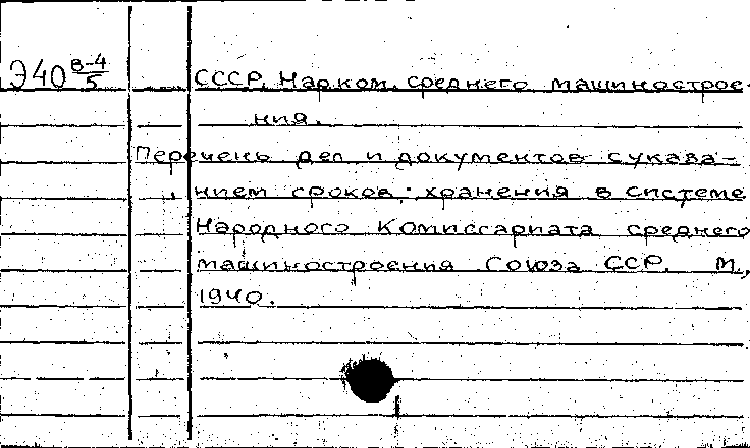 Э40 В-4/5
СССР. Нарком. среднего машинострое-
ния.
Перечень дел и документов с указа-
нием сроков хранения в системе
Народного Комиссариата среднего
машиностроения Союза ССР. М.,
1940.